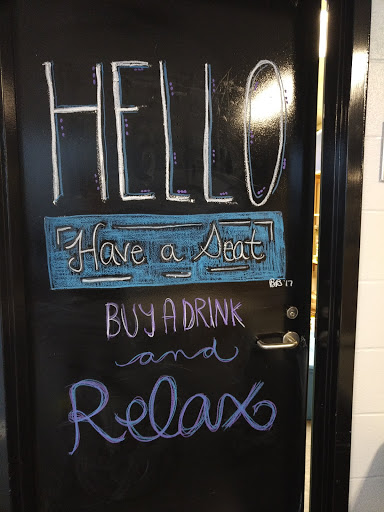 HELLO
Have a Seat
BUY A DRINK
and
Relax